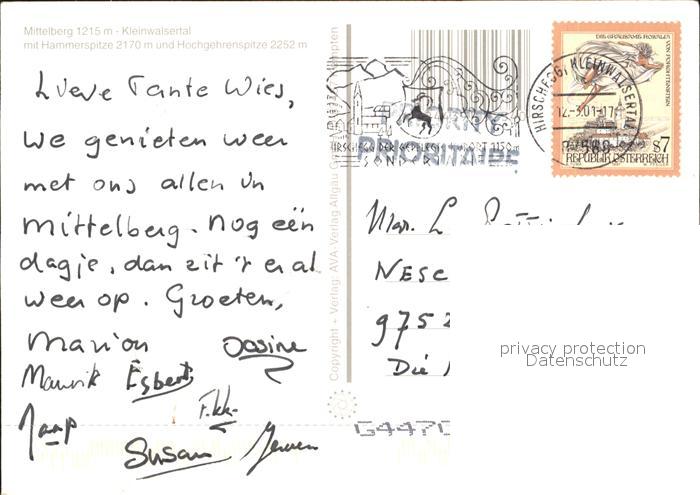 Mittelberg 1215 m - Kleinwalsertal
mit Hammerspitze 2170 m und Hochgehrenspitze 2252 m
Lieve Tante Wies,
we genieten weer
met ons allen in
Mittelberg. Nog één
dagje, dan zit 't er al
weer op. Groeten,
Marion
Maurik Egbert
Jaap
Susan Jeroen
Copyright + Verlag: AVA-Verlag Allgäu
PRIORITAIRE
HIRSCHEGG, KLEINWALSERTAL
DIE GRAUSAME ROSALIA
VON FORCHTENSTEIN
S7
REPUBLIK ÖSTERREICH
NESC
975
Die
privacy protection
Datenschutz